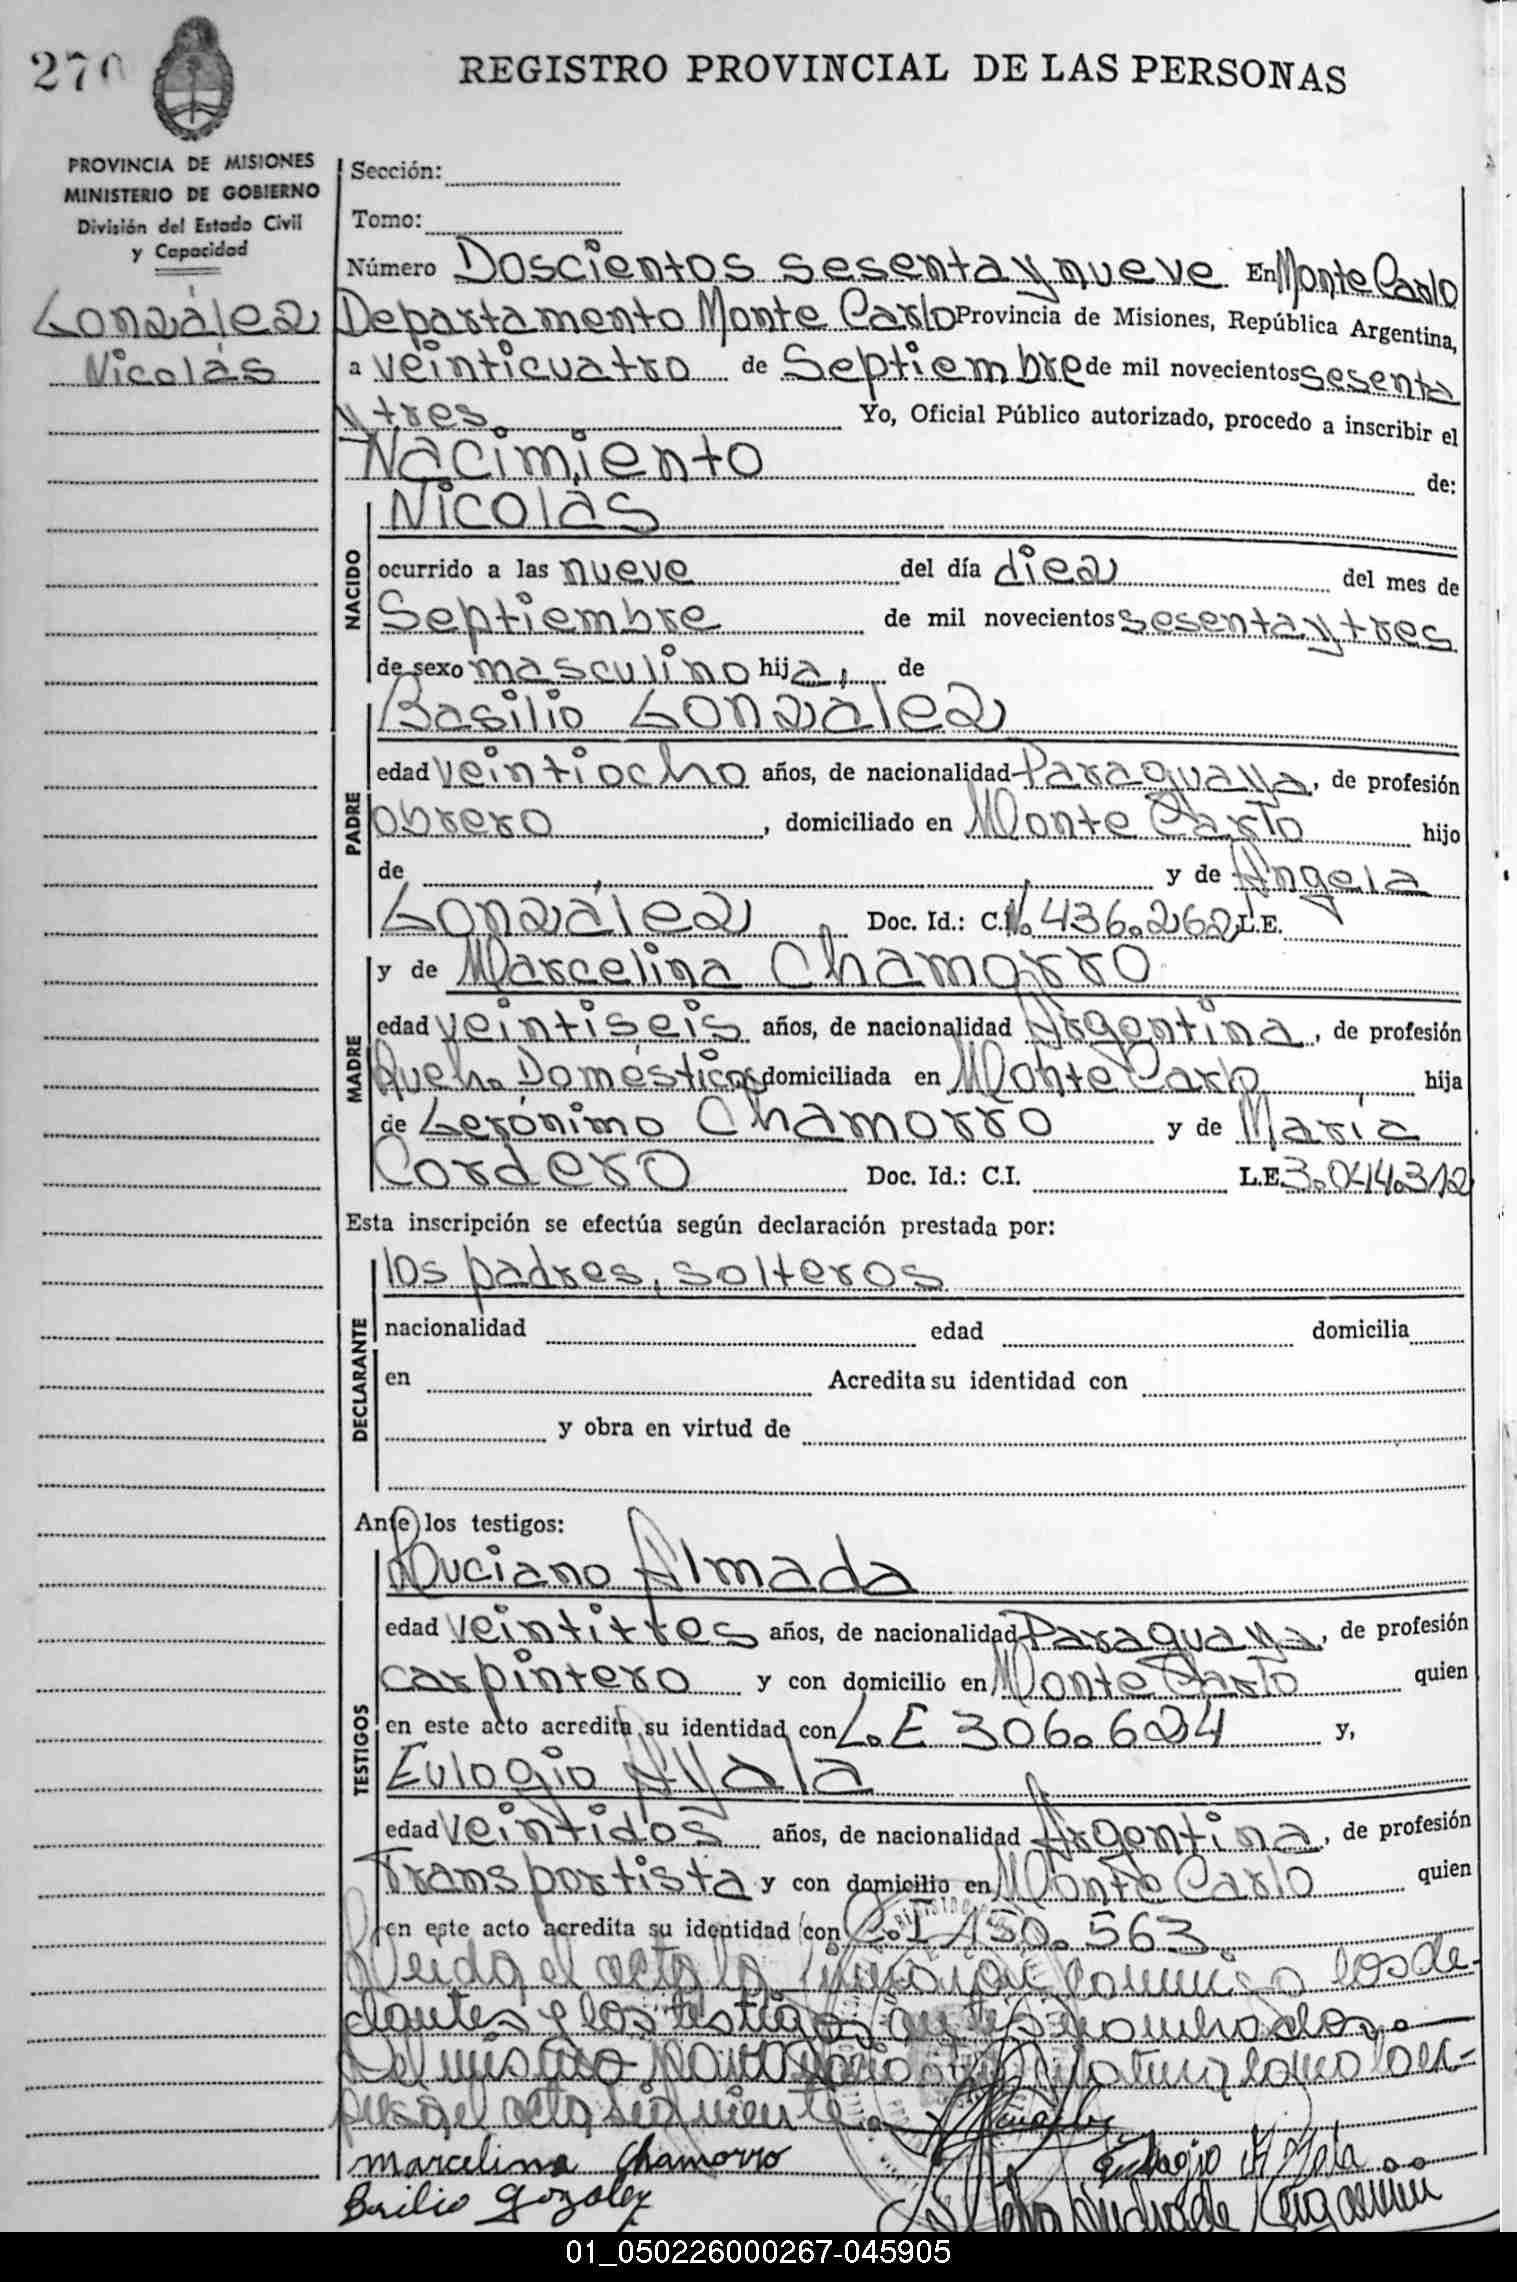 270
REGISTRO PROVINCIAL DE LAS PERSONAS
PROVINCIA DE MISIONES
MINISTERIO DE GOBIERNO
División del Estado Civil
y Capacidad
González
Nicolás
Sección:
Tomo:
Número Doscientos sesenta y nueve En Monte Carlo
Departamento Monte Carlo Provincia de Misiones, República Argentina,
a veinticuatro de Septiembre de mil novecientos sesenta
y tres Yo, Oficial Público autorizado, procedo a inscribir el
Nacimiento de:
Nicolás
NACIDO
ocurrido a las nueve del día diez del mes de
Septiembre de mil novecientos sesenta y tres
de sexo masculino hija, de
Basilio González
PADRE
edad veintiocho años, de nacionalidad Paraguaya, de profesión
obrero, domiciliado en Monte Carlo hijo
de y de Angela
González Doc. Id.: C.I. No. 436.262 L.E.
y de Marcelina Chamorro
MADRE
edad veintiseis años, de nacionalidad Argentina, de profesión
Queh. Domésticos domiciliada en Monte Carlo hija
de Gerónimo Chamorro y de María
Cordero Doc. Id.: C.I. L.E. 3.044.312
Esta inscripción se efectúa según declaración prestada por:
los padres, solteros
DECLARANTE
nacionalidad edad domicilia
en Acredita su identidad con
y obra en virtud de
Ante los testigos:
Luciano Almada
TESTIGOS
edad veintitres años, de nacionalidad Paraguaya, de profesión
carpintero y con domicilio en Monte Carlo quien
en este acto acredita su identidad con L.E 306.624 y,
Eulogio Ayala
edad veintidos años, de nacionalidad Argentina, de profesión
Transportista y con domicilio en Monte Carlo quien
en este acto acredita su identidad con C.I 150.563
Leida el acta la firmaron conmigo los de-
clantes y los testigos antes nombrados.
Del mismo
el acta siguiente.
Marcelina Chamorro
Eulogio Ayala
Basilio Gozalez
01_050226000267-045905